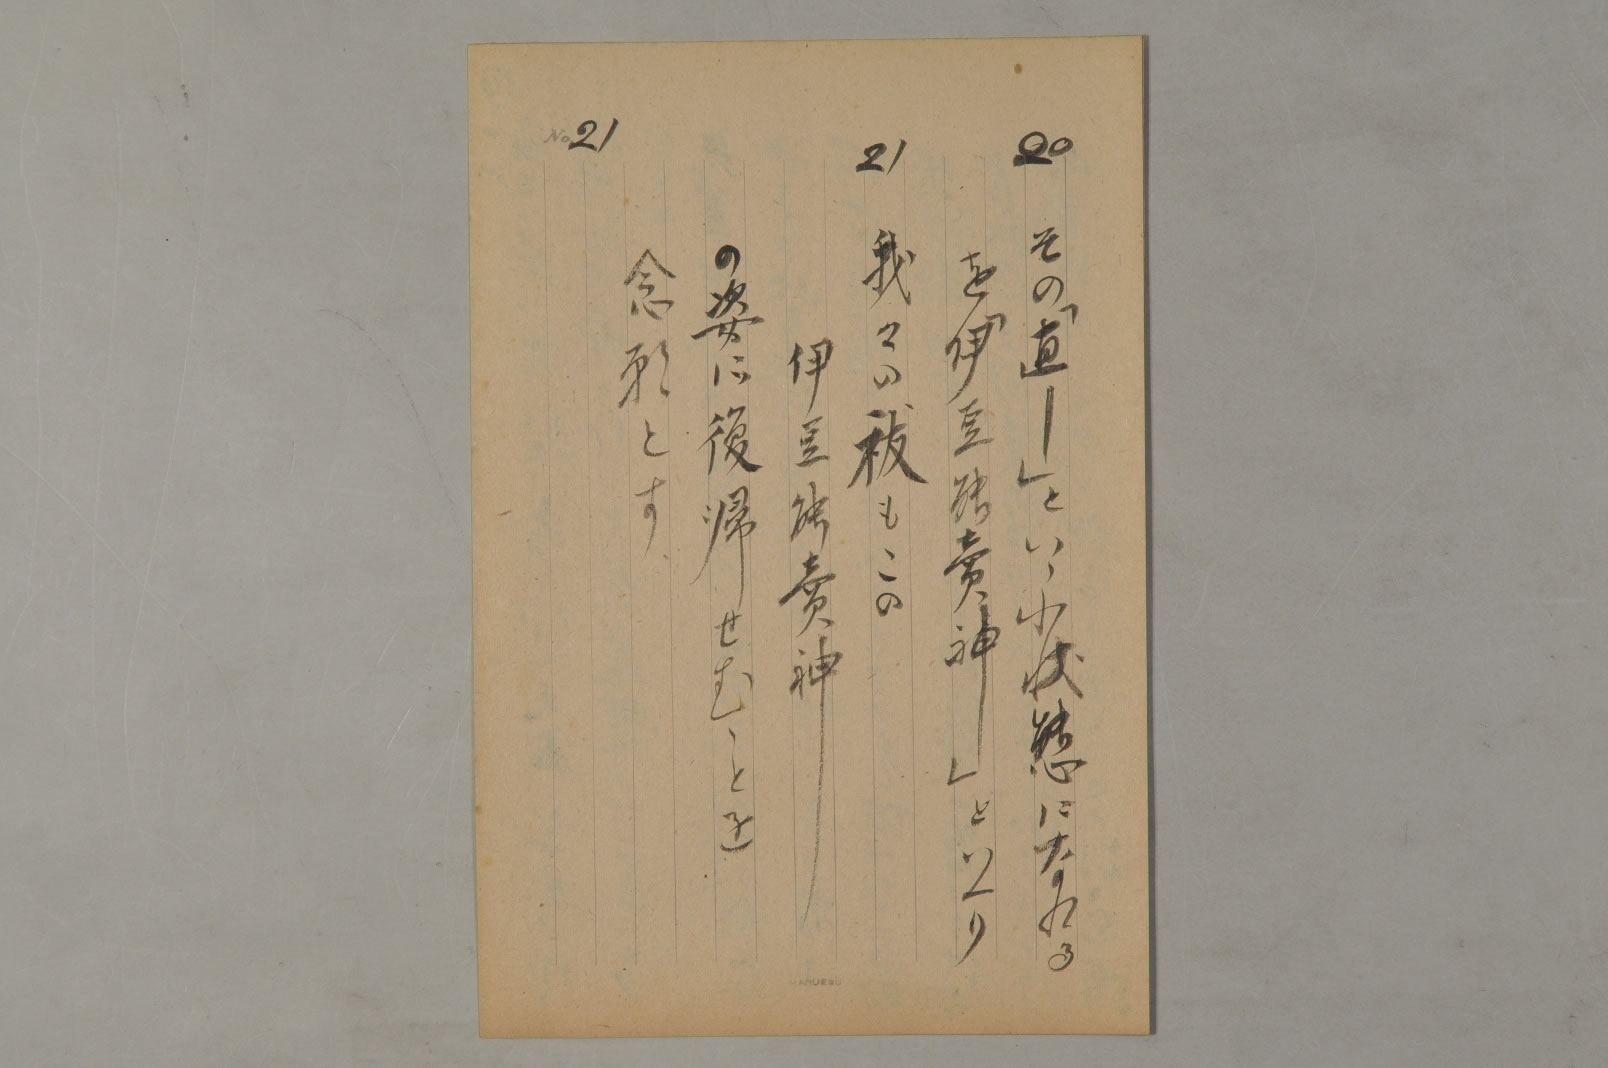 20 その「直ー」といふ状態になれる
を「伊豆能賣神」といへり
21 我々の祓もこの
伊豆能賣神
の姿に復帰せむことを
念願とす
No. 21